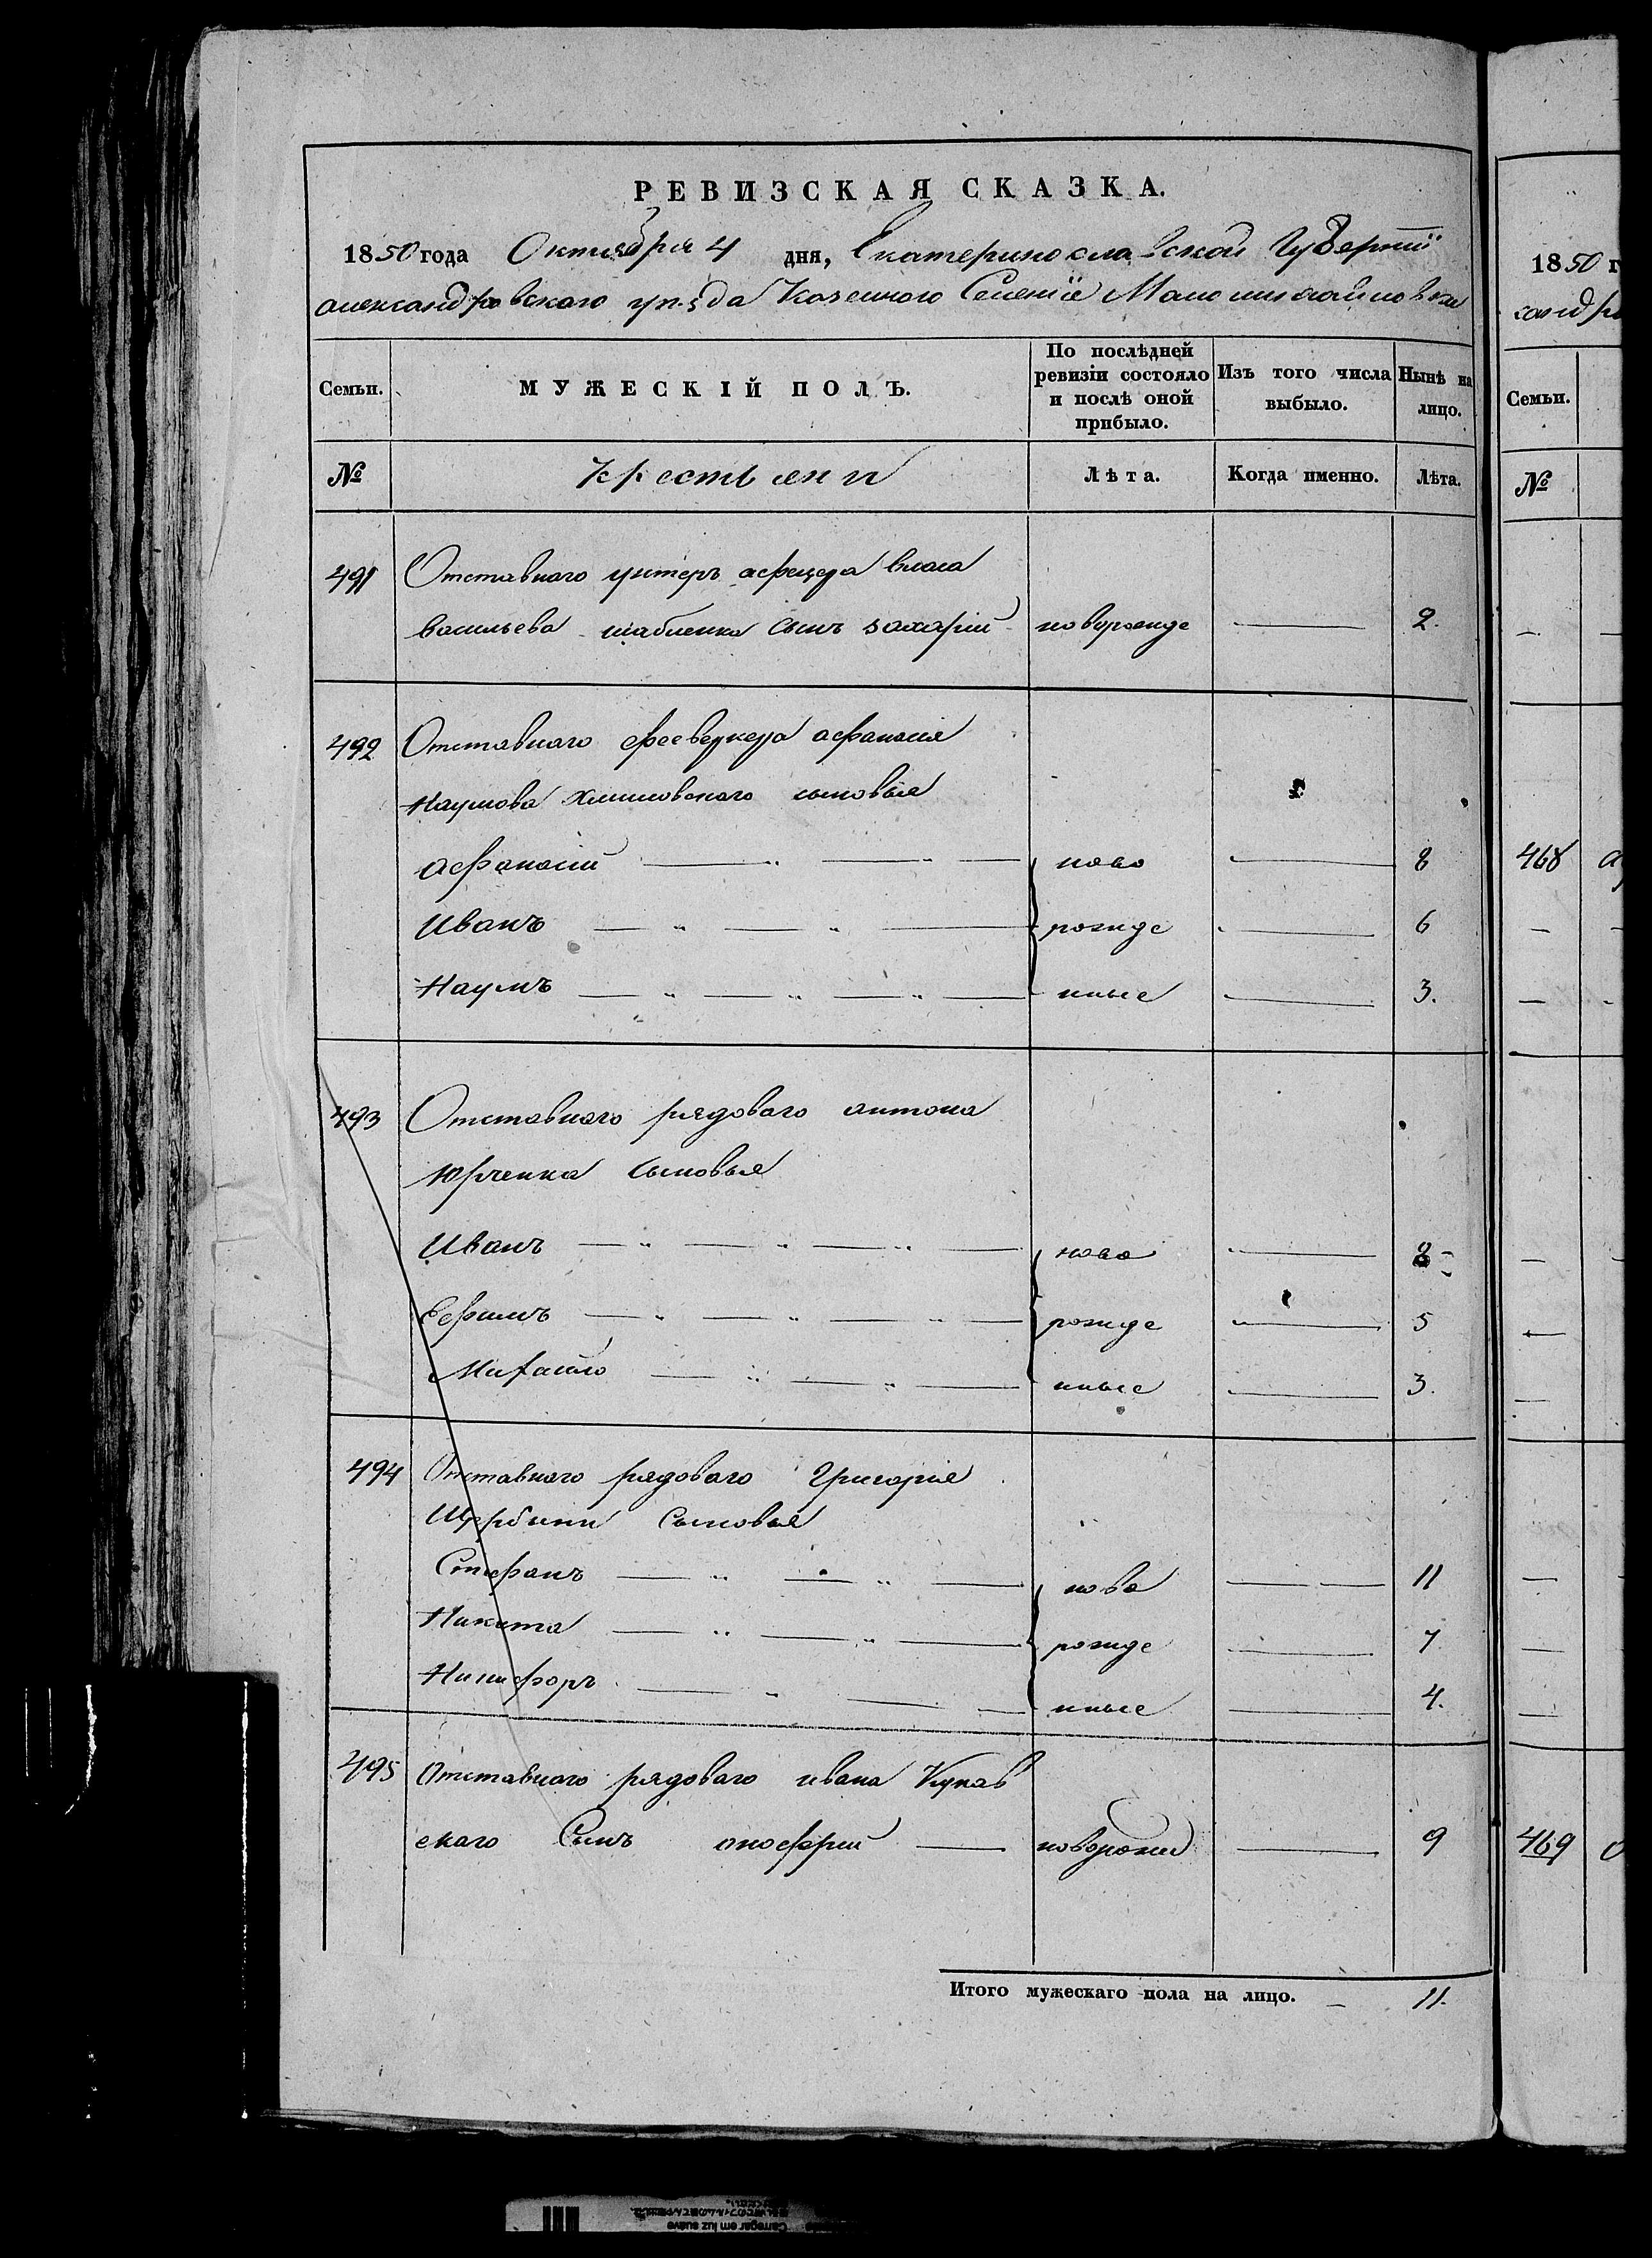 РЕВИЗСКАЯ СКАЗКА.
1850 года Октября 4 дня, Екатеринославской Губернии
александровскаго уѣзда Казенного Селенїе Маломихайловки
Семьи. МУЖЕСКІЙ ПОЛЪ. По послѣдней ревизіи состояло и послѣ оной прибыло. Изъ того числа выбыло. Нынѣ на лицо.
№ крестьяни Лѣта. Когда именно. Лѣта.
491 Отставного унтеръ афицера власа
васильева шабленка Сынъ захарїй новорожде 2.
492 Отставного феєверкера афанасія
Наумова сыновья
афанасій ново 8
Иванъ рожде 6
Наумъ нные 3.
493 Отставного рядового антона
Юрченка сыновья
Иванъ ново 8
Ефимъ рожде 5
Михайло нные 3.
494 Отставного рядового Григорія
Щербини Сыновья
Стефанъ ново 11
Никита рожде 7
Никифоръ нные 4.
495 Отставного рядового ивана Кукав
скаго Сынъ онофрий новорожд 9
Итого мужескаго пола на лицо. 11.
1850 г
Семьи.
№
468
469